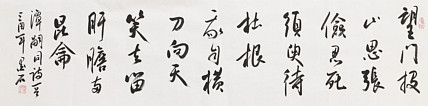 望门投
止思張
儉忍死
須臾待
杜根
我自横
刀向天
笑去留
肝膽两
昆崙
譚嗣同詩